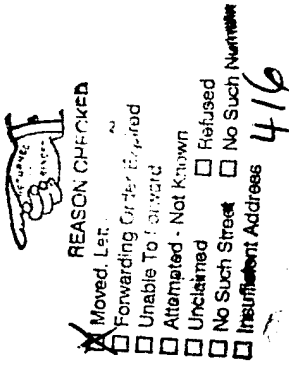 RETURNED
SENDER
REASON CHECKED
☒ Moved, Left
☐ Forwarding Order Expired
☐ Unable To Forward
☐ Attempted - Not Known
☐ Unclaimed ☐ Refused
☐ No Such Street ☐ No Such Number
☐ Insufficient Address
416